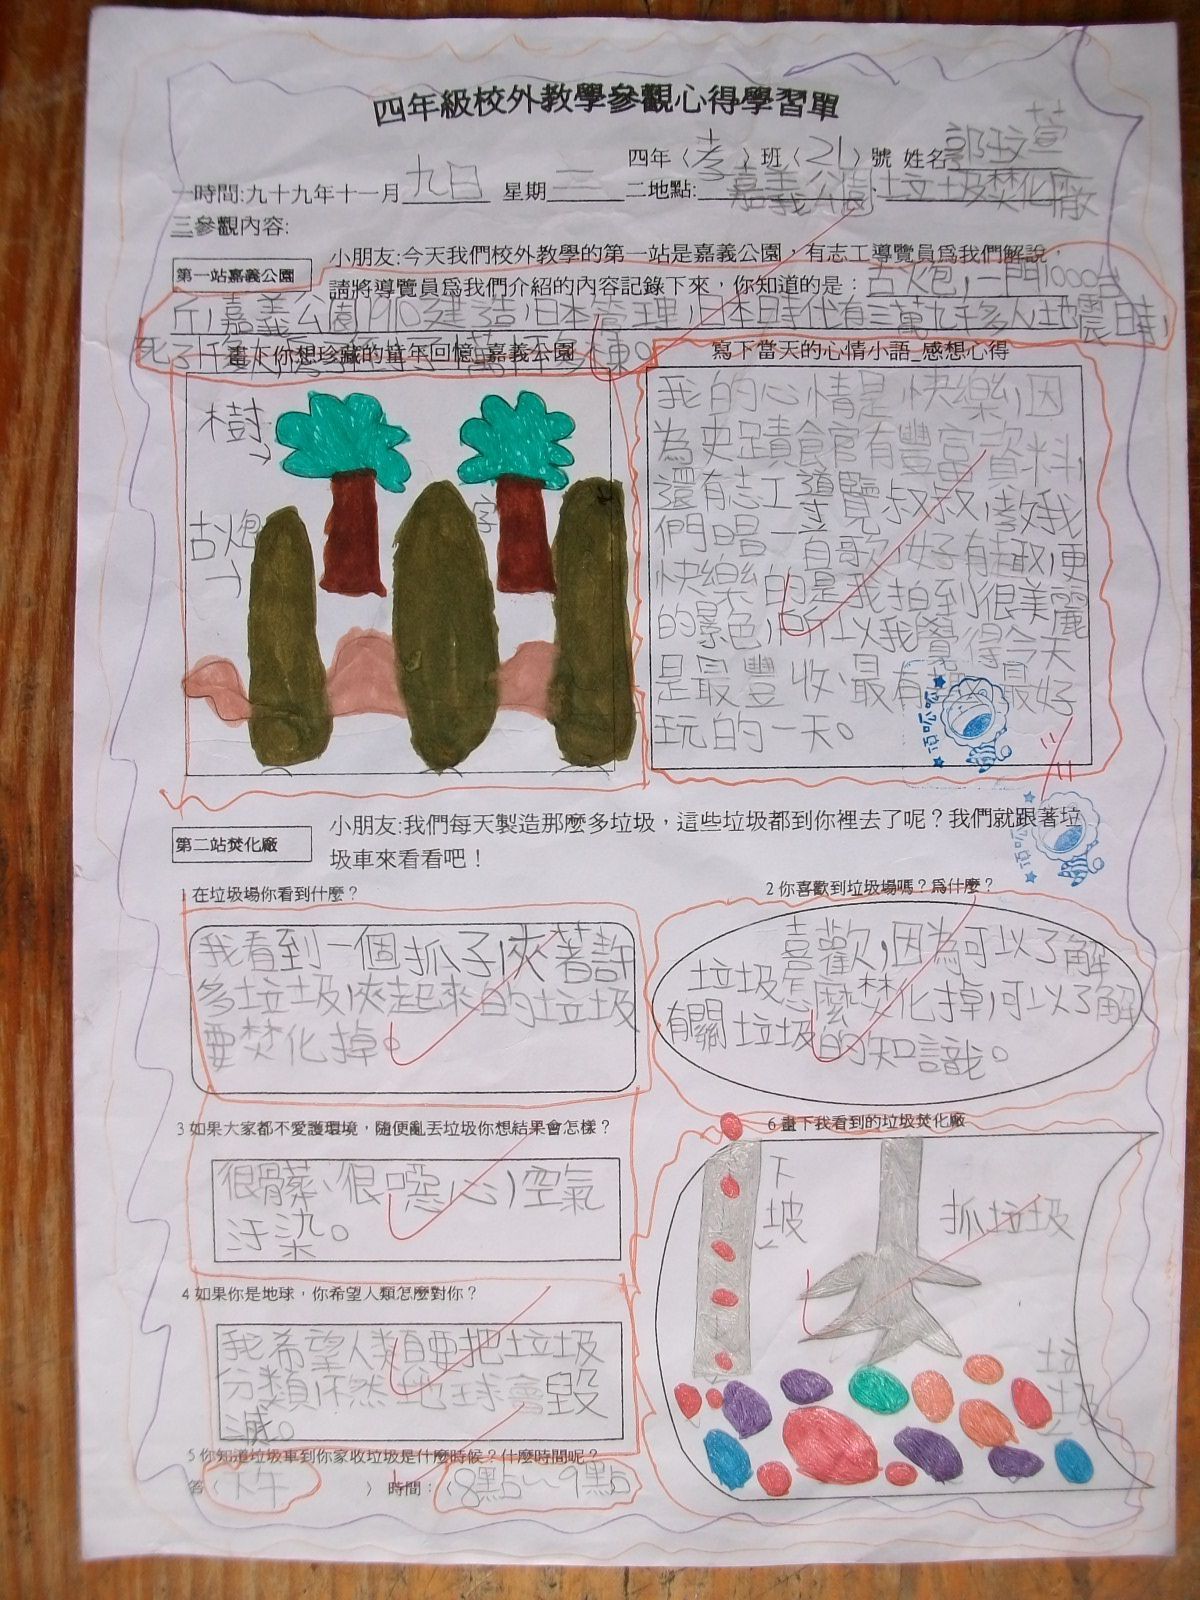 四年級校外教學參觀心得學習單
四年〈孝〉班〈21〉號 姓名郭玟萱
一時間:九十九年十一月九日 星期三 二地點:嘉義公園、垃圾焚化廠
三參觀內容:
第一站嘉義公園
小朋友:今天我們校外教學的第一站是嘉義公園，有志工導覽員為我們解說，
請將導覽員為我們介紹的內容記錄下來，你知道的是：古火炮，一門1000台
斤，嘉義公園1910建造，日本管理，日本時代有三萬九千多人，地震時，
畫下你想珍藏的童年回憶_嘉義公園
樹
古炮
字
寫下當天的心情小語_感想心得
我的心情是快樂，因
為史蹟館有豐富資料，
還有志工導覽叔叔，教我
們唱一首歌，好有趣，更
快樂的是我拍到很美麗
的景色，所以我覺得今天
是最豐收、最有趣、最好
玩的一天。
第二站焚化廠
小朋友:我們每天製造那麼多垃圾，這些垃圾都到你裡去了呢？我們就跟著垃
圾車來看看吧！
1 在垃圾場你看到什麼？
我看到一個抓子，夾著許
多垃圾，夾起來的垃圾
要焚化掉。
2 你喜歡到垃圾場嗎？為什麼？
喜歡，因為可以了解
垃圾怎麼焚化掉，可以了解
有關垃圾的知識。
3 如果大家都不愛護環境，隨便亂丟垃圾你想結果會怎樣？
很髒、很噁心，空氣
汙染。
4 如果你是地球，你希望人類怎麼對你？
我希望人類要把垃圾
分類，不然地球會毀
滅。
5 你知道垃圾車到你家收垃圾是什麼時候？什麼時間呢？
答〈下午〉 時間：〈8點～9點〉
6 畫下我看到的垃圾焚化廠
下坡
抓垃圾
垃圾